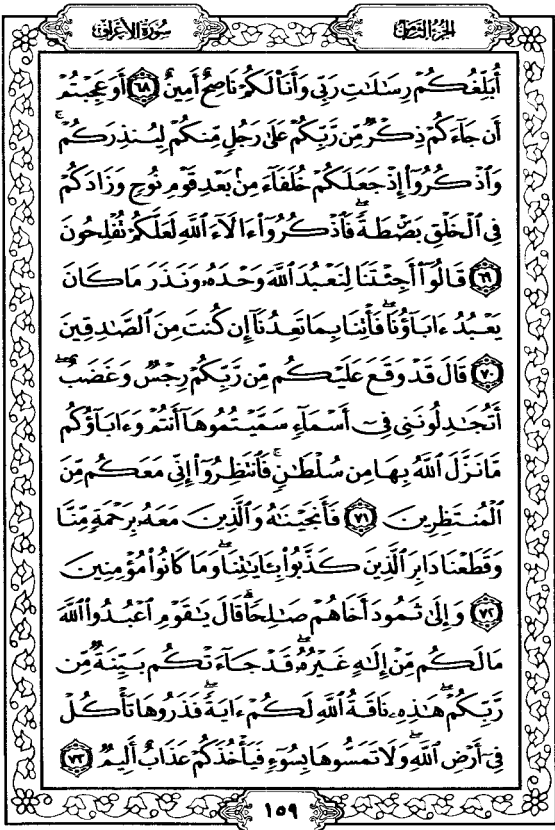 سُورَةُ الأَعْرَافِ
الجُزْءُ الثَّامِنُ
أُبَلِّغُكُمْ رِسَـٰلَـٰتِ رَبِّى وَأَنَا۠ لَكُمْ نَاصِحٌ أَمِينٌ ٦٨ أَوَعَجِبْتُمْ
أَن جَآءَكُمْ ذِكْرٌ مِّن رَّبِّكُمْ عَلَىٰ رَجُلٍ مِّنكُمْ لِيُنذِرَكُمْ ۚ
وَٱذْكُرُوٓا۟ إِذْ جَعَلَكُمْ خُلَفَآءَ مِنۢ بَعْدِ قَوْمِ نُوحٍ وَزَادَكُمْ
فِى ٱلْخَلْقِ بَصْۜطَةً ۖ فَٱذْكُرُوٓا۟ ءَالَآءَ ٱللَّهِ لَعَلَّكُمْ تُفْلِحُونَ
٦٩ قَالُوٓا۟ أَجِئْتَنَا لِنَعْبُدَ ٱللَّهَ وَحْدَهُۥ وَنَذَرَ مَا كَانَ
يَعْبُدُ ءَابَآؤُنَا ۖ فَأْتِنَا بِمَا تَعِدُنَآ إِن كُنتَ مِنَ ٱلصَّـٰدِقِينَ
٧٠ قَالَ قَدْ وَقَعَ عَلَيْكُم مِّن رَّبِّكُمْ رِجْسٌ وَغَضَبٌ ۖ
أَتُجَـٰدِلُونَنِى فِىٓ أَسْمَآءٍ سَمَّيْتُمُوهَآ أَنتُمْ وَءَابَآؤُكُم
مَّا نَزَّلَ ٱللَّهُ بِهَا مِن سُلْطَـٰنٍ ۚ فَٱنتَظِرُوٓا۟ إِنِّى مَعَكُم مِّنَ
ٱلْمُنتَظِرِينَ ٧١ فَأَنجَيْنَـٰهُ وَٱلَّذِينَ مَعَهُۥ بِرَحْمَةٍ مِّنَّا
وَقَطَعْنَا دَابِرَ ٱلَّذِينَ كَذَّبُوا۟ بِـَٔايَـٰتِنَا ۖ وَمَا كَانُوا۟ مُؤْمِنِينَ
٧٢ وَإِلَىٰ ثَمُودَ أَخَاهُمْ صَـٰلِحًا ۗ قَالَ يَـٰقَوْمِ ٱعْبُدُوا۟ ٱللَّهَ
مَا لَكُم مِّنْ إِلَـٰهٍ غَيْرُهُۥ ۖ قَدْ جَآءَتْكُم بَيِّنَةٌ مِّن
رَّبِّكُمْ ۖ هَـٰذِهِۦ نَاقَةُ ٱللَّهِ لَكُمْ ءَايَةً ۖ فَذَرُوهَا تَأْكُلْ
فِىٓ أَرْضِ ٱللَّهِ ۖ وَلَا تَمَسُّوهَا بِسُوٓءٍ فَيَأْخُذَكُمْ عَذَابٌ أَلِيمٌ ٧٣
١٥٩